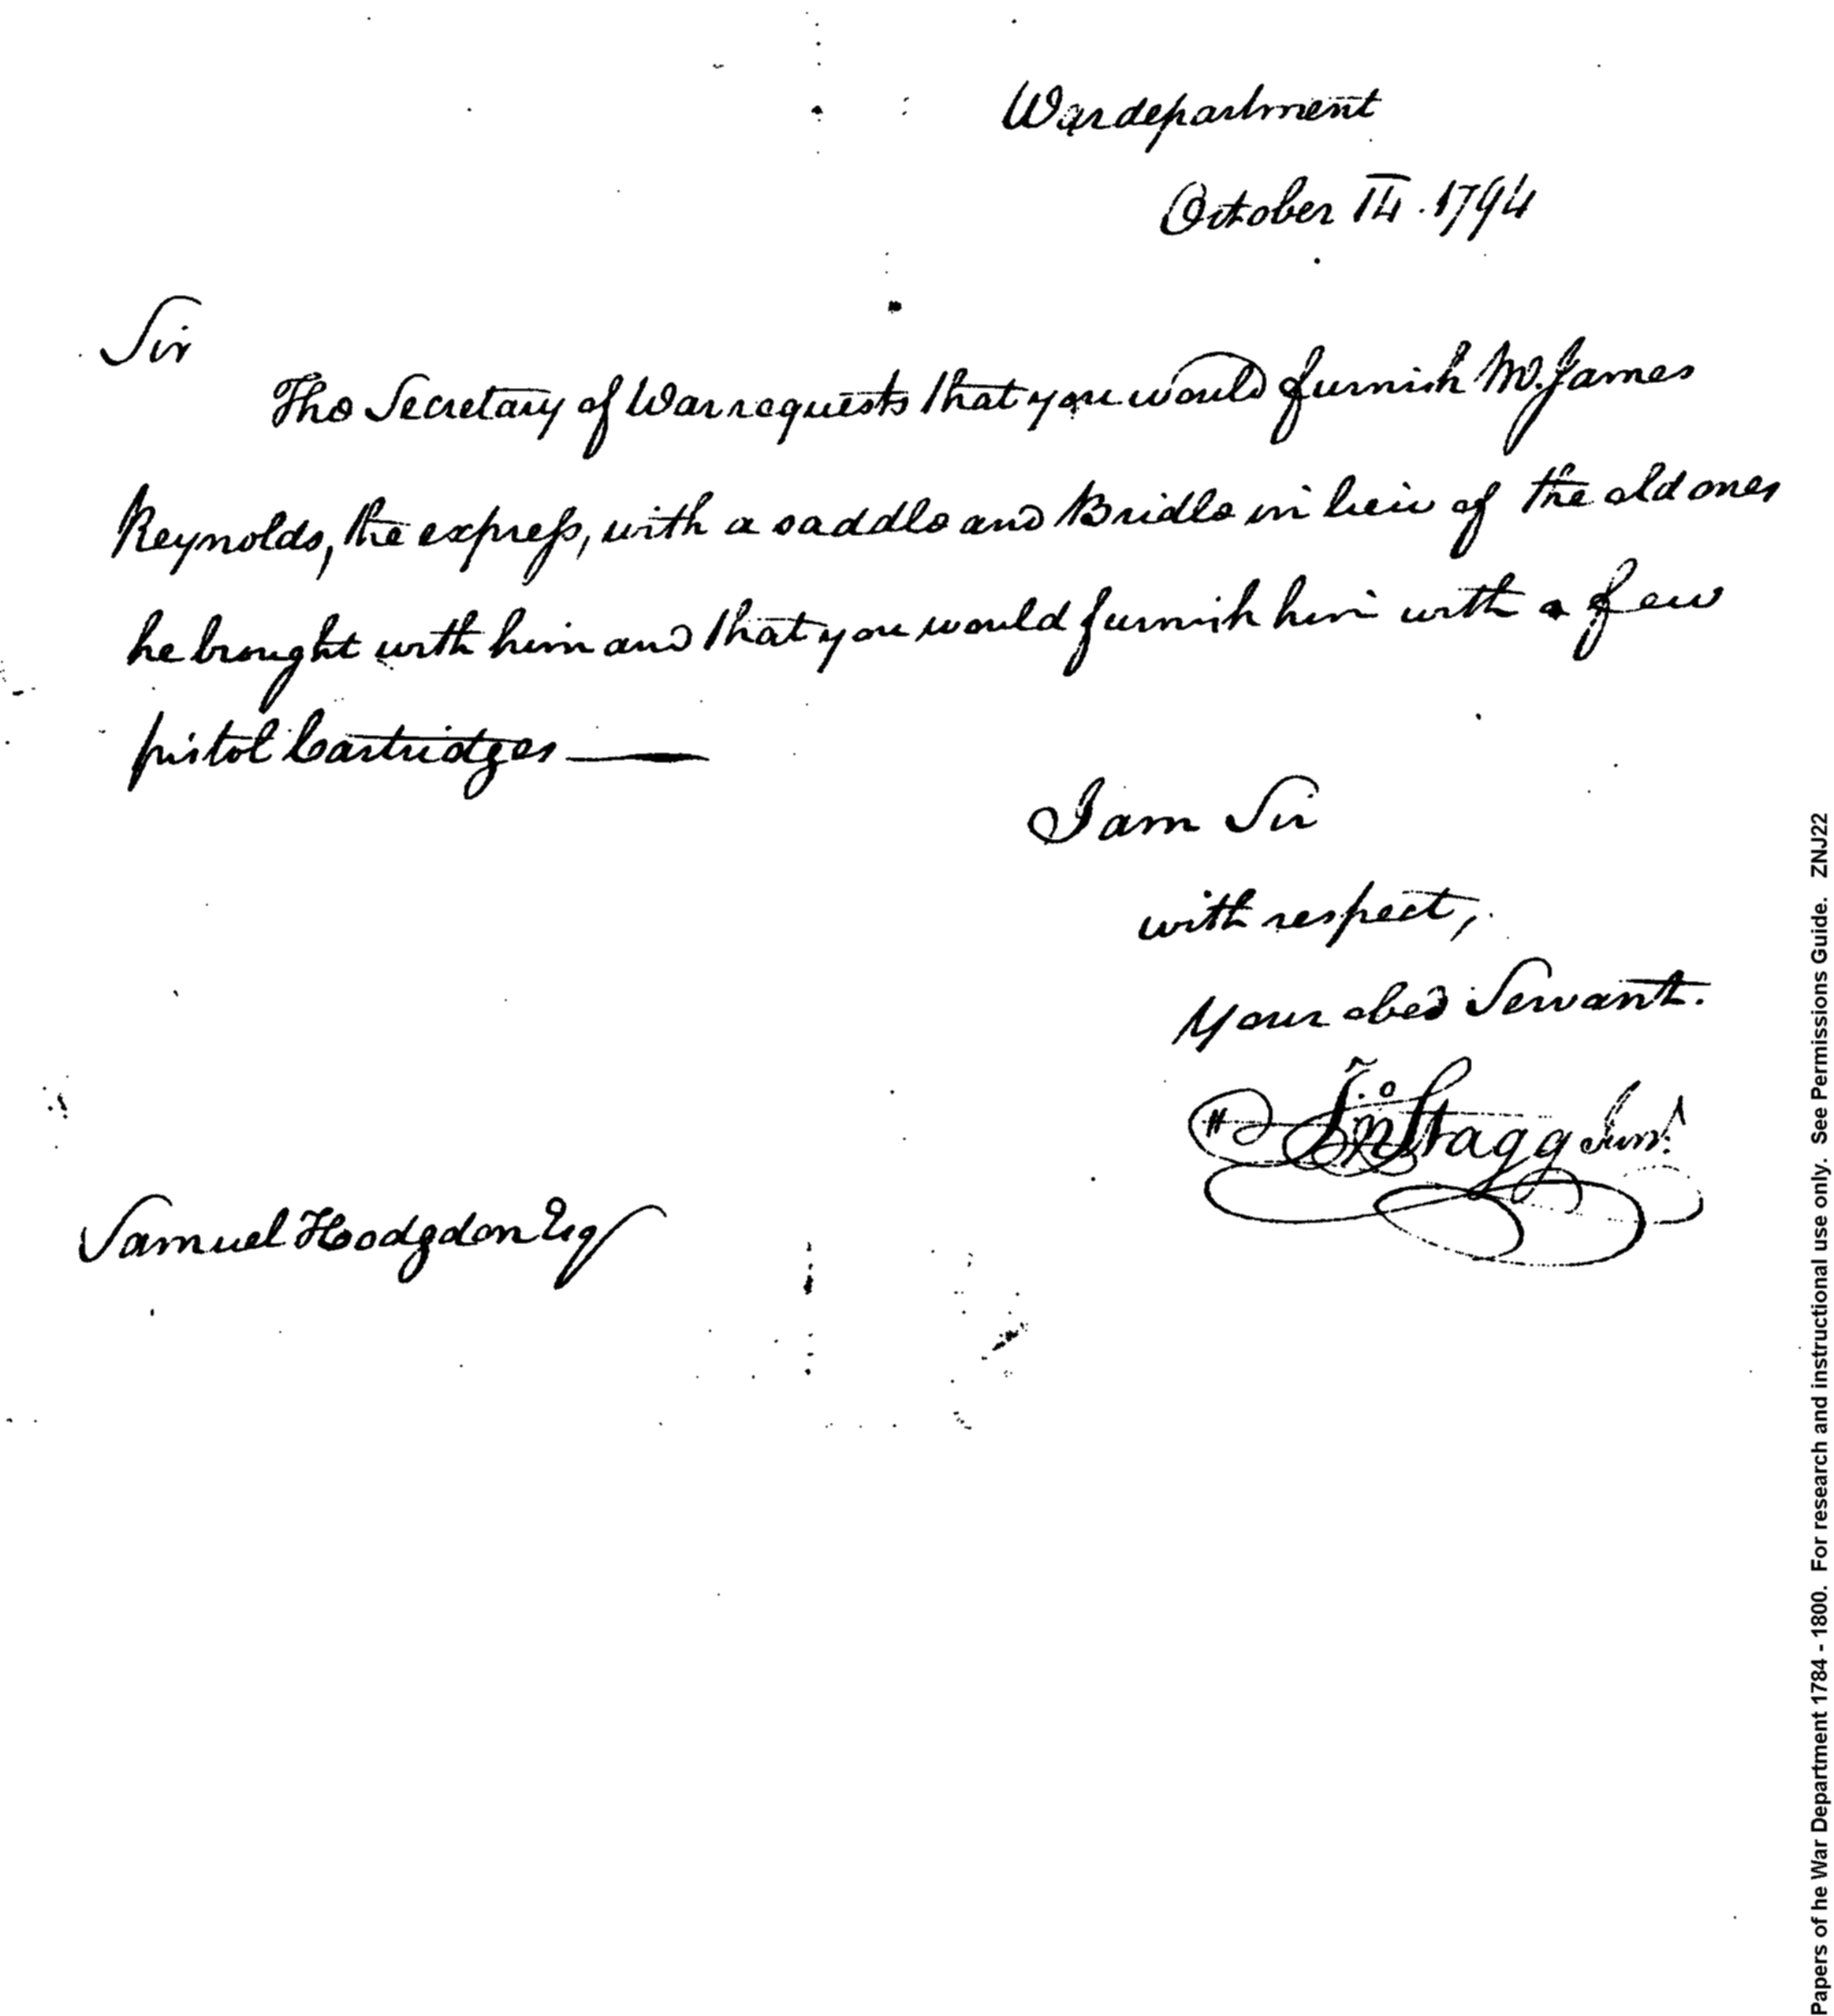 War department
October 14. 1794
Sir
The Secretary of War requests that you would furnish Mr. James
Reynolds, the express, with a saddle and Bridle in lieu of the old ones
he brought with him and that you would furnish him with a few
pistol Cartridges —
I am Sir
with respect,
Your obed Servant.
Jno Stagg Junr.
Samuel Hodgdon Esq
Papers of he War Department 1784 - 1800. For research and instructional use only. See Permissions Guide. ZNJ22